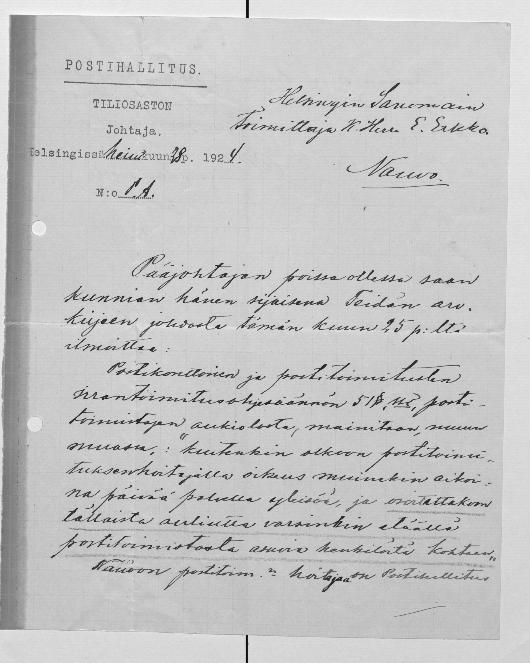 POSTIHALLITUS.
TILIOSASTON
Johtaja.
Helsingissä heinäkuun 28 p. 1924.
N:o P.A.
Helsingin Sanomain
toimittaja K. Herra E. Erkko.
Nauvo.
Pääjohtajan poissa ollessa saan
kunnian hänen sijaisena Teidän arv.
kirjeen johdosta tämän kuun 25 p:ltä
ilmoittaa:
Postikonttorien ja postitoimitusten
ohjesäännön 51 §, posti-
toimistojen aukiolosta, mainitaan, muun
muassa,: "kuitenkin olkoon postitoimi-
tuksenhoitajilla oikeus muinakin aikoi-
na päivää palvella yleisöä, ja osoitettakoon
tällaista auliutta varsinkin etäällä
postitoimistosta asuvia henkilöitä kohtaan"
Nauvon postitoim. hoitajan on Postihallitus